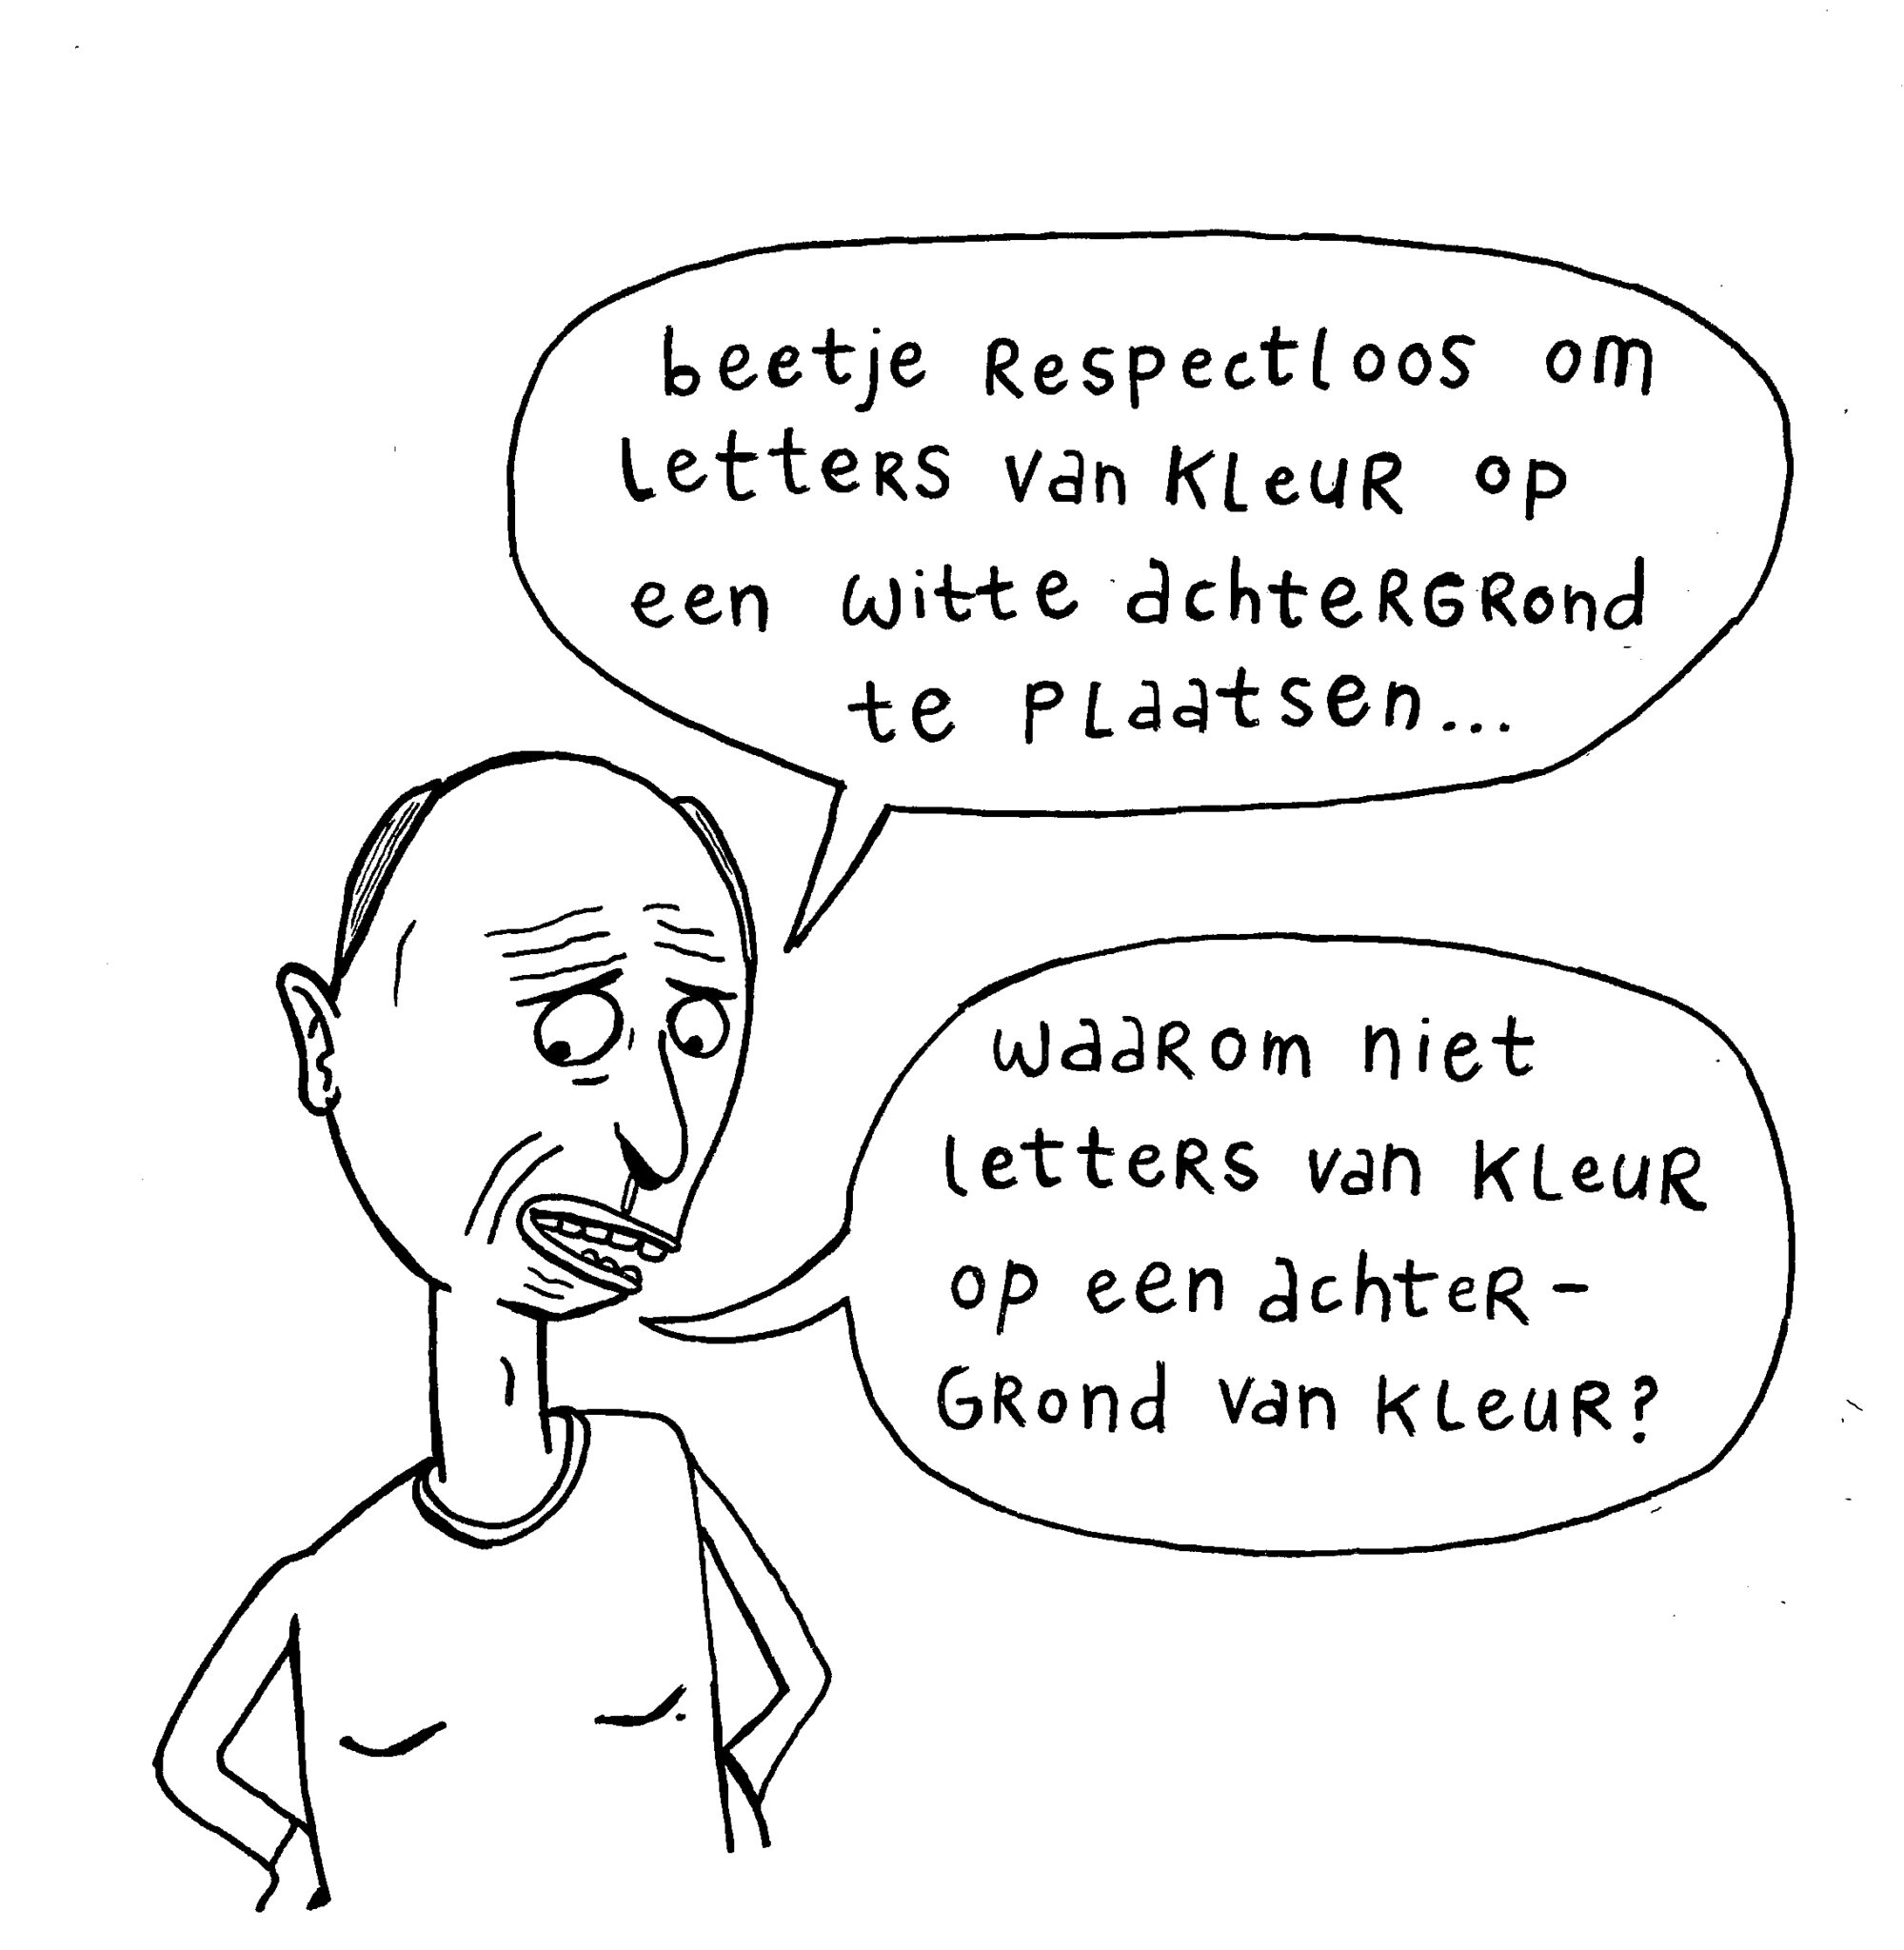 beetje Respectloos om
Letters van kleur op
een witte achtergrond
te plaatsen...
waarom niet
letters van kleur
op een achter-
grond van kleur?